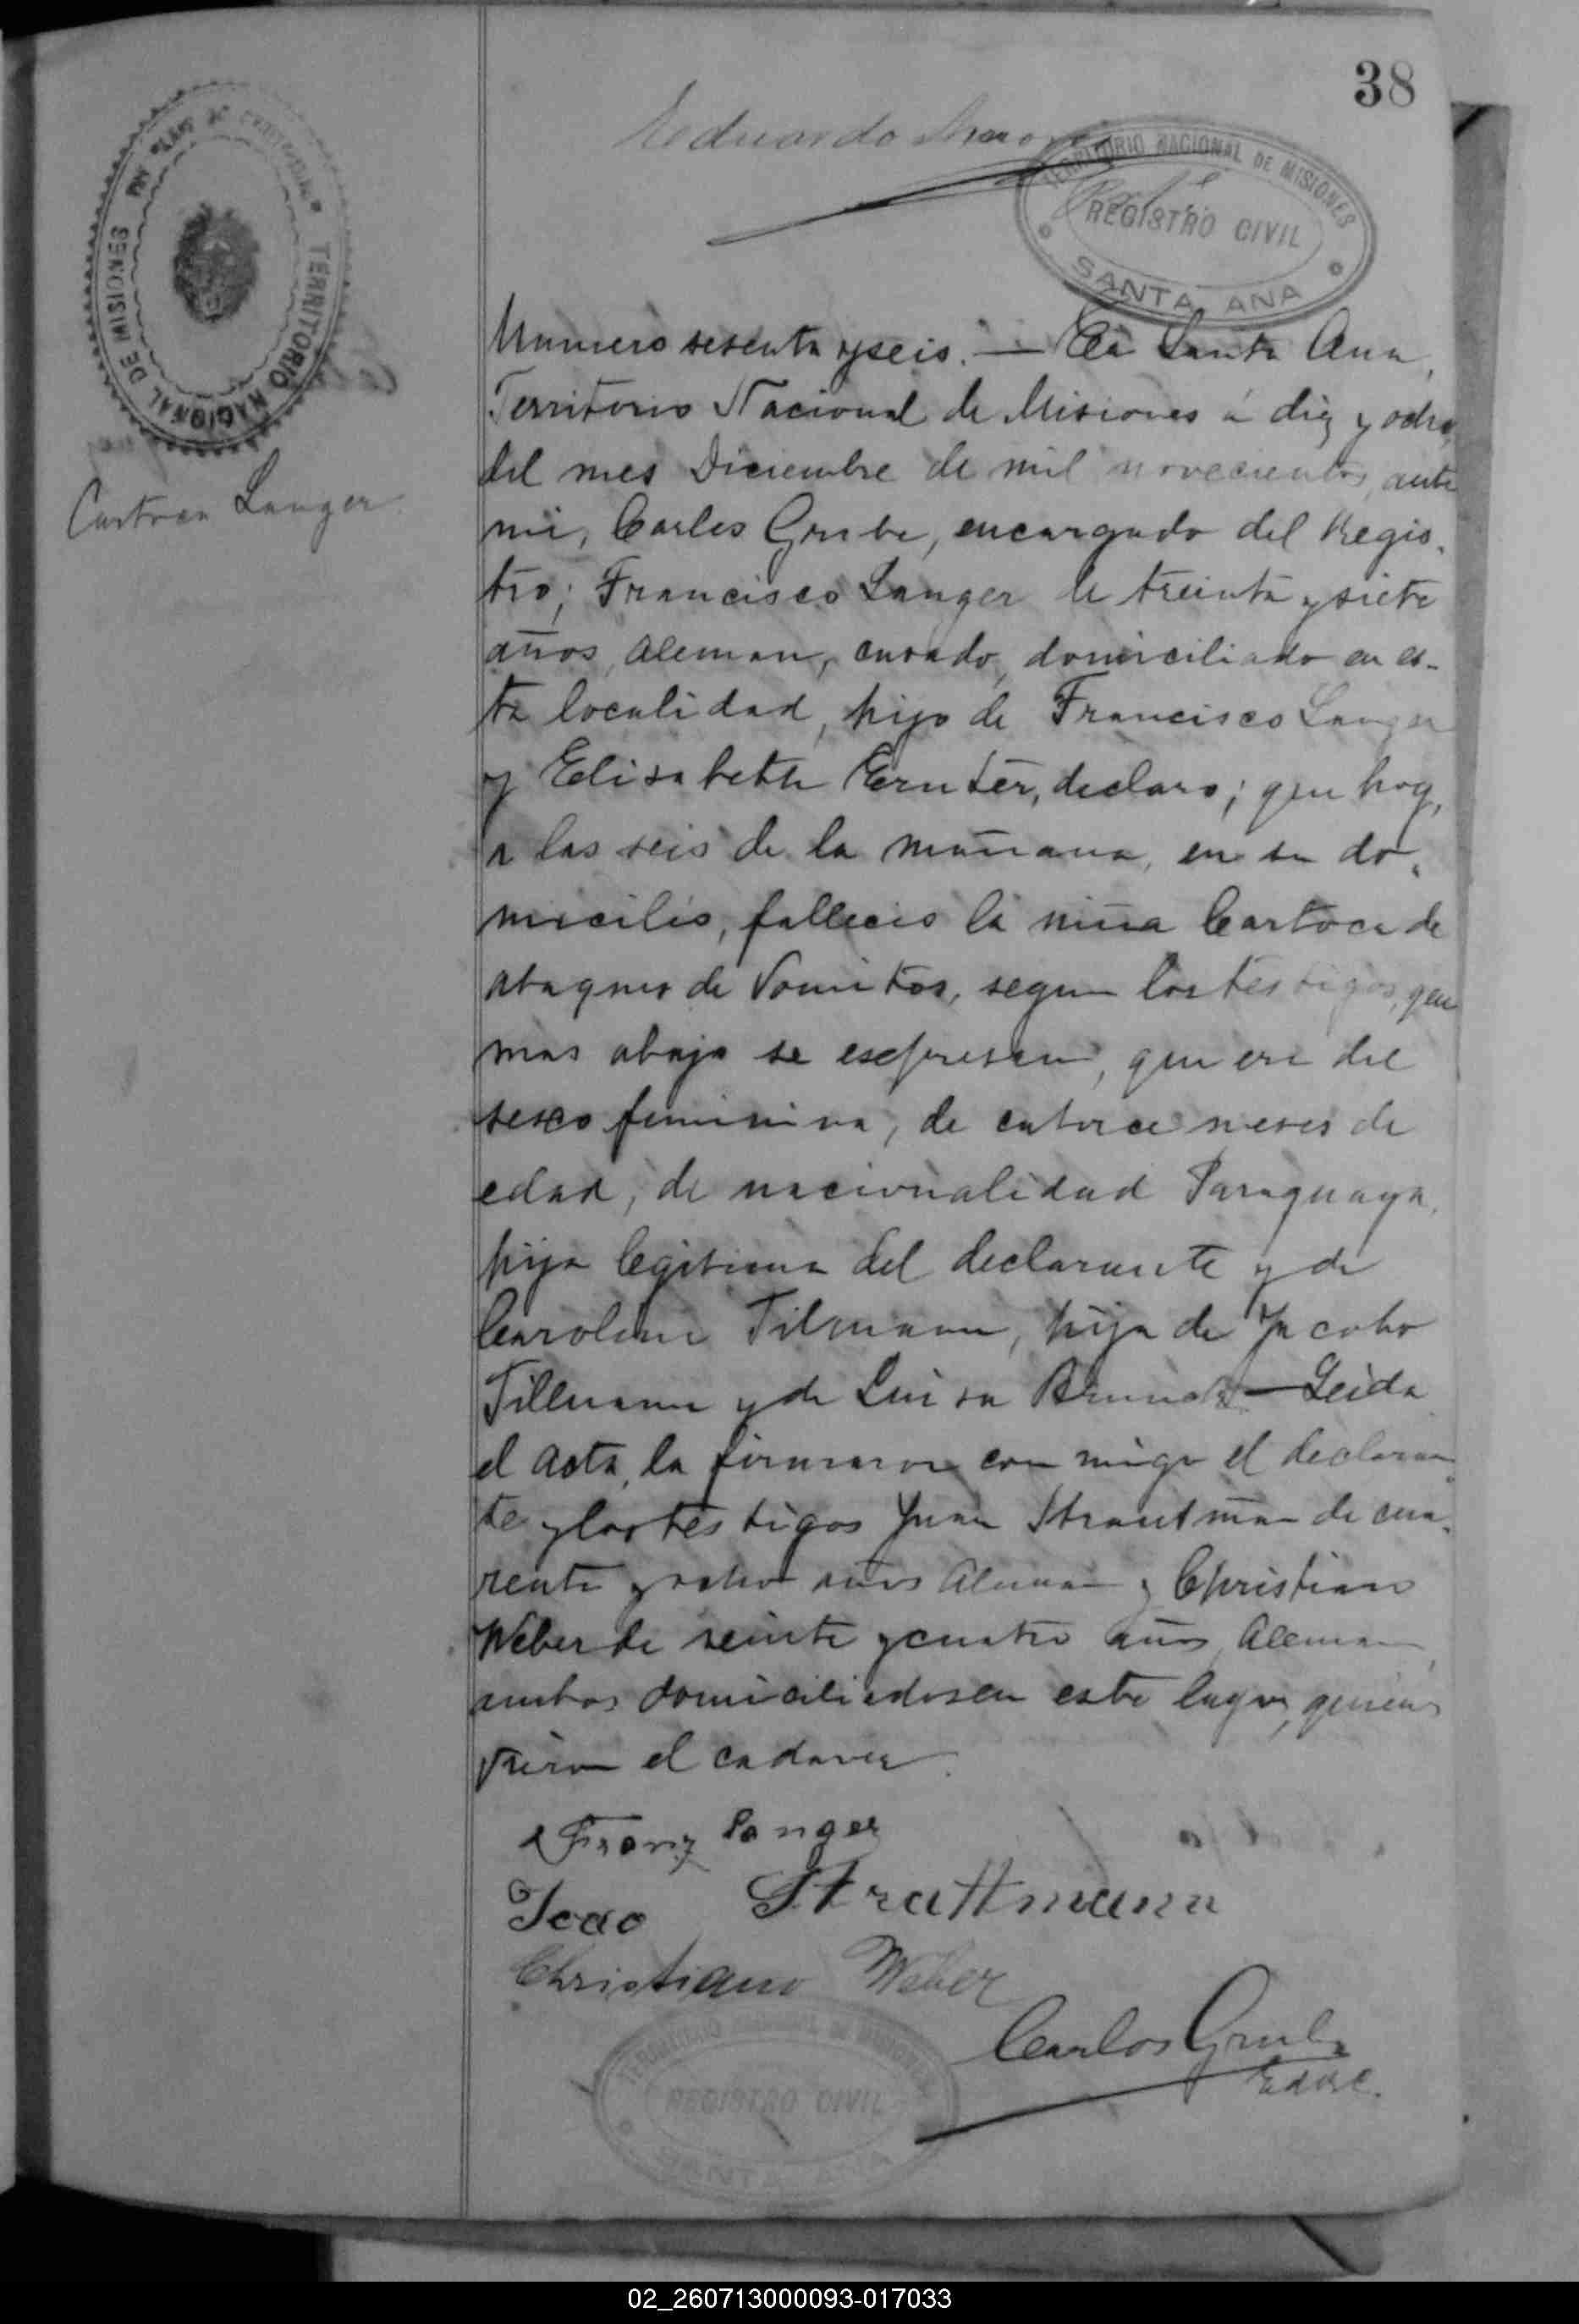 38
Eduardo
TERRITORIO NACIONAL DE MISIONES
REGISTRO CIVIL
SANTA ANA
TERRITORIO NACIONAL DE MISIONES
Langer
Numero sesenta y seis. — En Santa Ana,
Territorio Nacional de Misiones á diez y ocho
del mes Diciembre de mil novecientos, ante
mi, Carlos Grube, encargado del Regis-
tro; Francisco Langer de treinta y siete
años, Aleman, casado, domiciliado en es-
ta localidad, hijo de Francisco Langer
y Elisabeth Ernter, declaro; que hoy,
a las seis de la mañana, en su do-
micilio, fallecio la niña Cartoca de
ataques de Vomitos, segun los testigos, que
mas abajo se esxpresan, que era del
sexo feminina, de catorce meses de
edad, de nacionalidad Paraguaya,
hija legitima del declarante y de
Carolina Tilmann, hija de Jacobo
Tillmann y de Luisa — Leida
el acta, la firmaron con migo el declaran-
te y los testigos Juan Strautman de cua-
renta y ocho años Aleman y Christian
Weber de veinte y cuatro años, Aleman,
ambos domiciliados en este lugar, quienes
vieron el cadaver.
Franz Langer
Joao Strattmann
Christiano Weber
Carlos Grube
TERRITORIO NACIONAL DE MISIONES
REGISTRO CIVIL
SANTA ANA
02_260713000093-017033